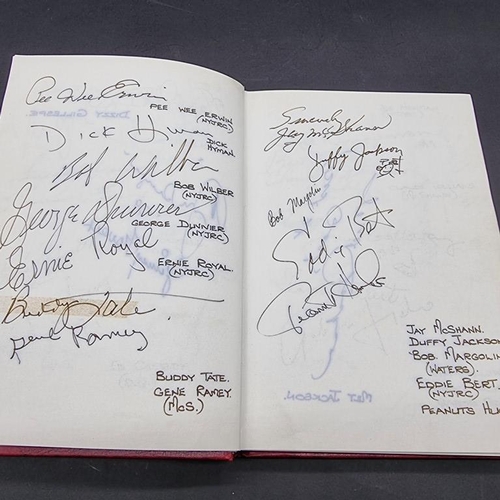 Pee Wee Erwin
PEE WEE ERWIN
(NYJRC)
Dick Hyman
DICK
HYMAN.
Bob Wilber
BOB WILBER
(NYJRC)
George Duvivier
GEORGE DUNNIER
(NYJRC)
Ernie Royal
ERNIE ROYAL.
(NYJRC)
Buddy Tate
Gene Ramey
BUDDY TATE.
GENE RAMEY.
(McS.)
Sincerely
Jay McShann
Duffy Jackson
Bob Margolin
Eddie Bert
Peanuts Hucko
JAY McSHANN.
DUFFY JACKSON
BOB MARGOLIN
(WATERS).
EDDIE BERT.
(NYJRC)
PEANUTS HU
DIZZY GILLESPIE
MILT JACKSON